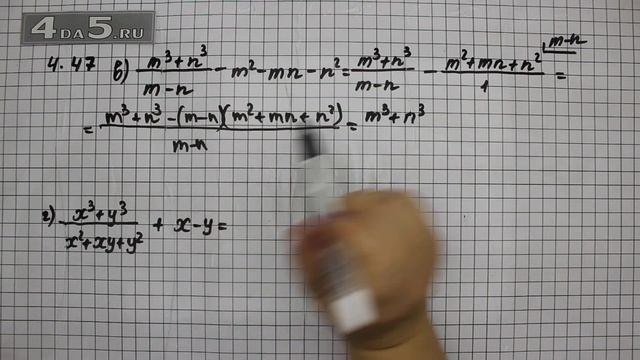 4 DA 5.RU
4.47 в) (m³+n³)/(m-n) - m²-mn-n² = (m³+n³)/(m-n) - (m²+mn+n²)/1 ⌊m-n =
= (m³+n³-(m-n)(m²+mn+n²))/(m-n) = m³+n³
г) (x³+y³)/(x²+xy+y²) + x-y =